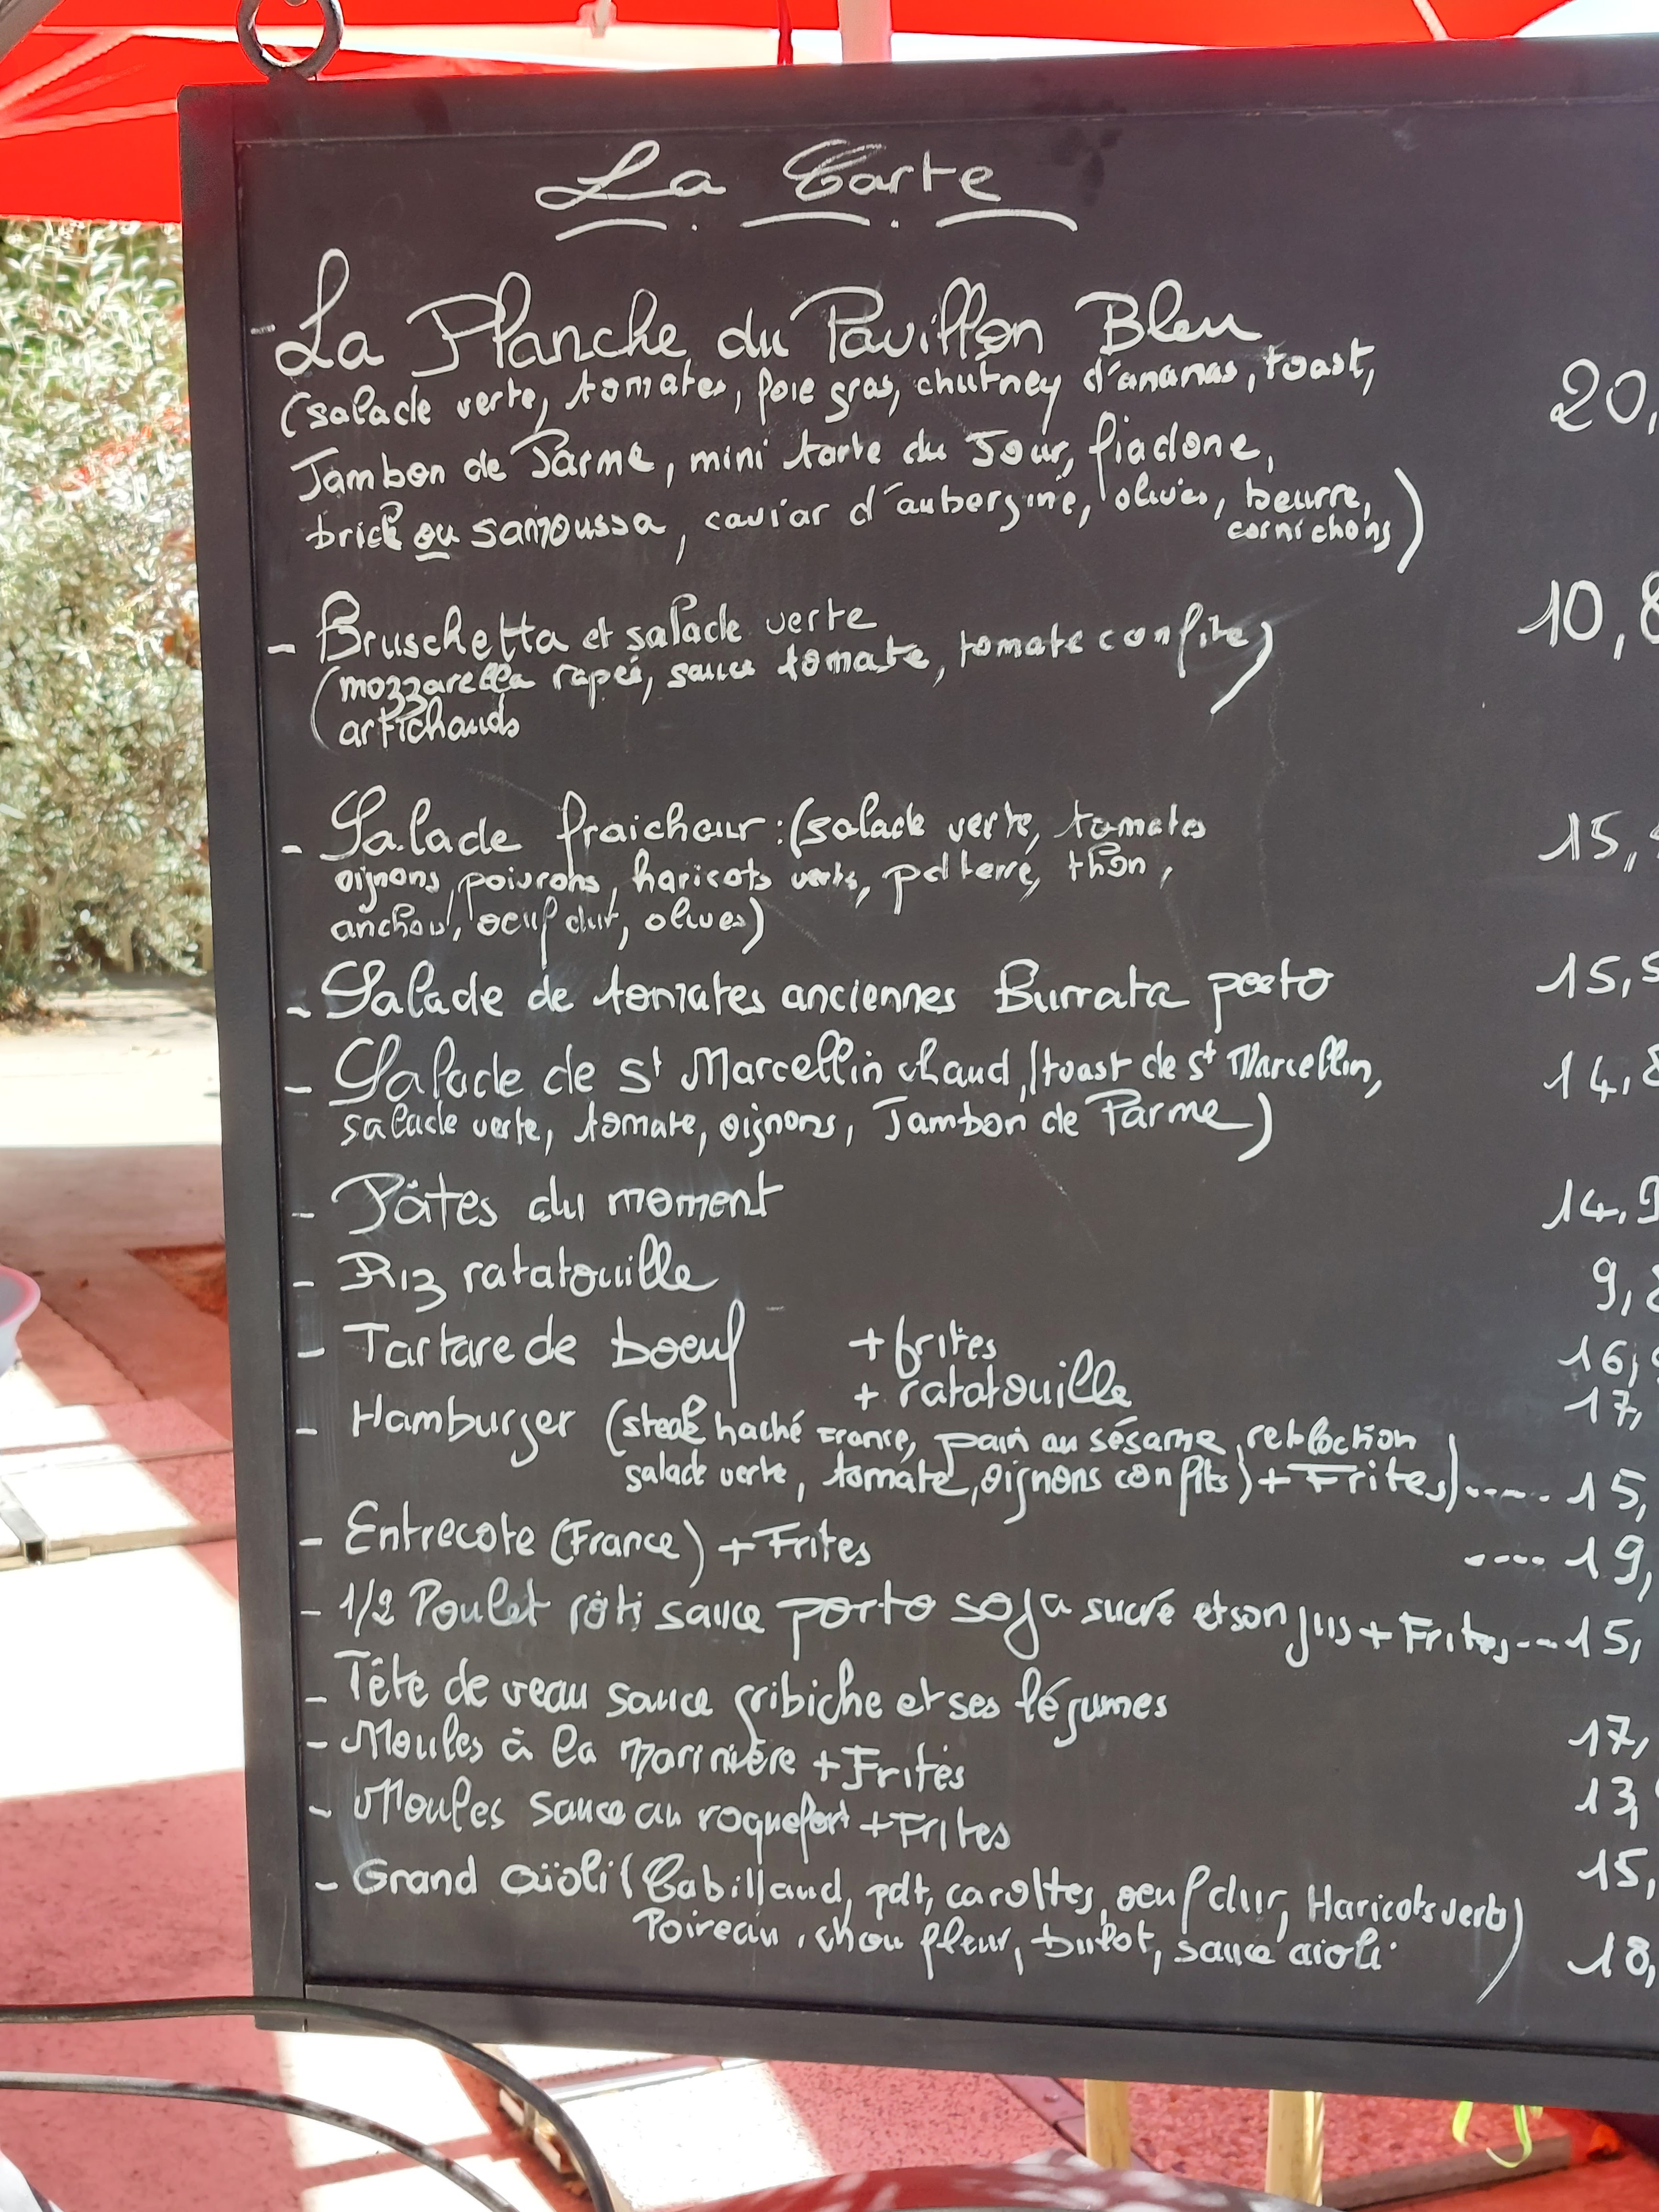 La Carte
- La Planche du Pavillon Bleu
(salade verte, tomates, foie gras, chutney d'ananas, toast, 20,
Jambon de Parme, mini tarte du Jour, fiadone,
brick ou samoussa, caviar d'aubergine, olives, beurre,
cornichons)
- Bruschetta et salade verte 10,8
(mozzarella rapée, sauce tomate, tomate confite)
artichauds
- Salade fraicheur : (salade verte, tomates 15,
oignons, poivrons, haricots verts, pdterre, thon,
anchois, oeuf dur, olives)
- Salade de tomates anciennes Burrata pesto 15,5
- Salade de St Marcellin chaud, (toast de St Marcellin, 14,8
salade verte, tomate, oignons, Jambon de Parme)
- Pâtes du moment 14,9
- Riz ratatouille 9,8
- Tartare de boeuf + frites 16,9
+ ratatouille 17,
- Hamburger (steak haché France, pain au sésame, reblochon
salade verte, tomate, oignons confits) + Frites) ----- 15,
- Entrecote (France) + Frites ---- 19,
- 1/2 Poulet rôti sauce porto soja sucré et son jus + Frites --- 15,
- Tête de veau sauce gribiche et ses légumes 17,
- Moules à la Marinière + Frites 13,
- Moules sauce au roquefort + Frites 15,
- Grand aïoli (Cabillaud, pdt, carottes, oeuf dur, Haricots verts)
Poireau, chou fleur, bulot, sauce aioli. 18,